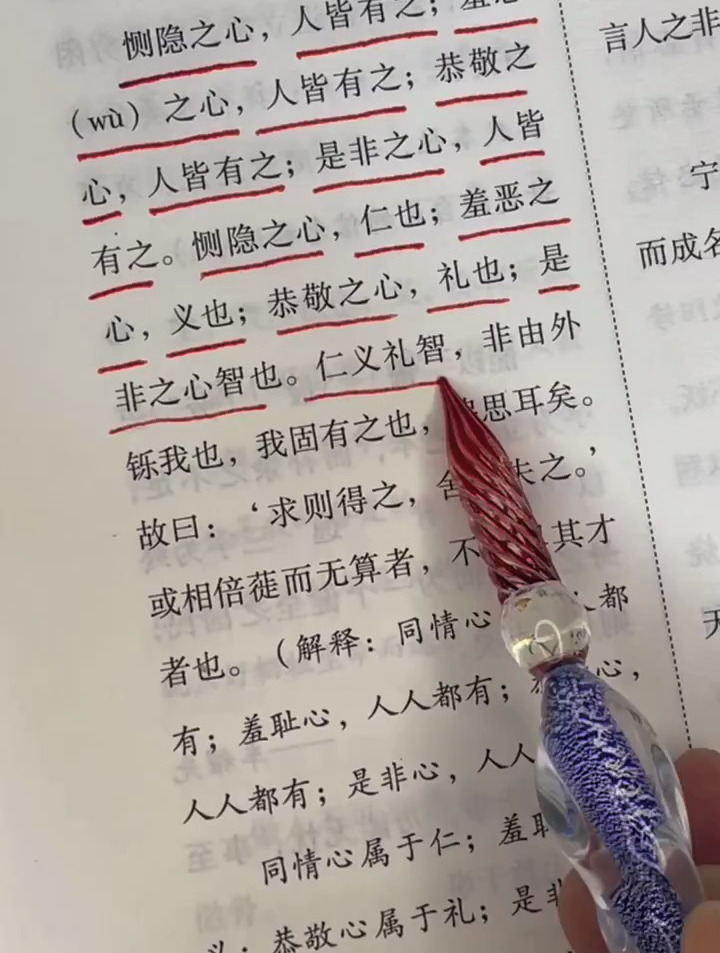 恻隐之心，人皆有之；羞恶
（wù）之心，人皆有之；恭敬之
心，人皆有之；是非之心，人皆
有之。恻隐之心，仁也；羞恶之
心，义也；恭敬之心，礼也；是
非之心智也。仁义礼智，非由外
铄我也，我固有之也，思耳矣。
故曰：‘求则得之，舍失之。’
或相倍蓰而无算者，不其才
者也。（解释：同情心人都
有；羞耻心，人人都有；心，
人人都有；是非心，人人
同情心属于仁；羞耻
义；恭敬心属于礼；是非
言人之非
宁
而成名
天